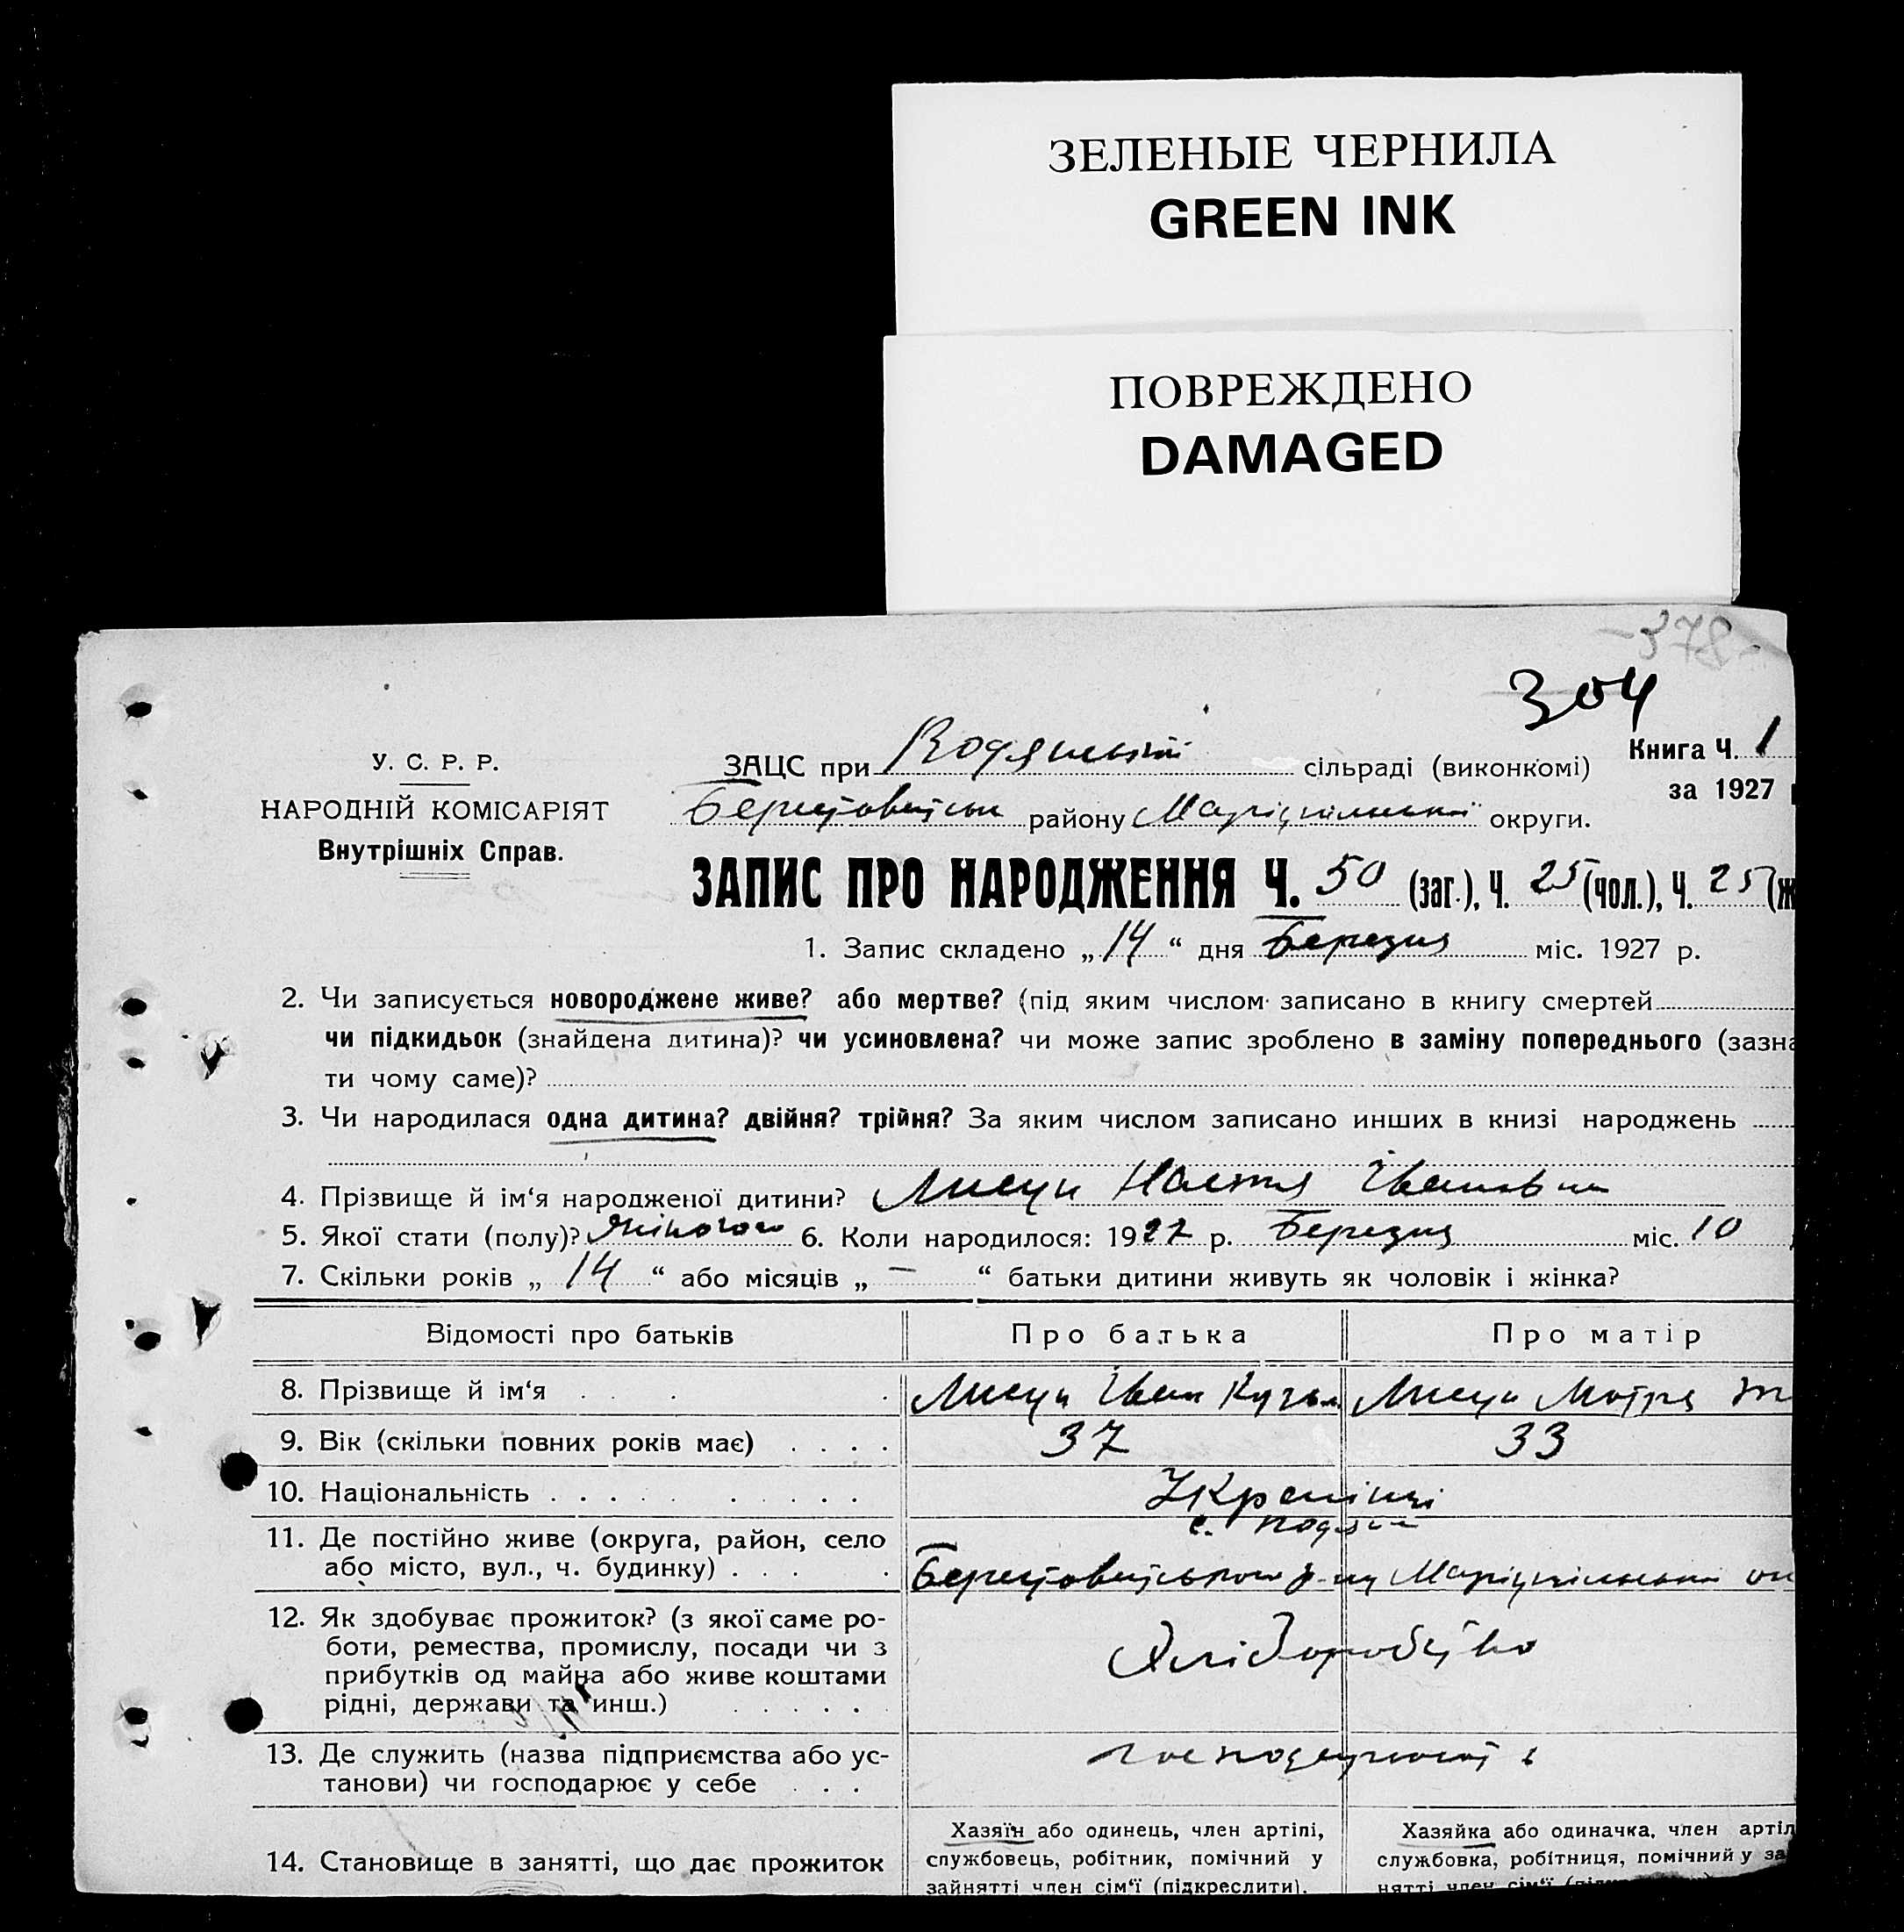 ЗЕЛЕНЫЕ ЧЕРНИЛА
GREEN INK
ПОВРЕЖДЕНО
DAMAGED
-378-
304
У. С. Р. Р.
НАРОДНІЙ КОМІСАРІЯТ
Внутрішніх Справ.
ЗАЦС при Водянській сільраді (виконкомі)
Книга Ч. 1
за 1927
району Маріупільської округи.
ЗАПИС ПРО НАРОДЖЕННЯ Ч. 50 (заг.), Ч. 25 (чол.), Ч. 25 (ж
1. Запис складено „14“ дня Березня міс. 1927 р.
2. Чи записується новороджене живе? або мертве? (під яким числом записано в книгу смертей
чи підкидьок (знайдена дитина)? чи усиновлена? чи може запис зроблено в заміну попереднього (зазна
ти чому саме)?
3. Чи народилася одна дитина? двійня? трійня? За яким числом записано инших в книзі народжень
4. Прізвище й ім‘я народженої дитини? Настя Івановна
5. Якої стати (полу)? жіночого 6. Коли народилося: 1927 р. Березня міс. 10
7. Скільки років „ 14 “ або місяців „ – “ батьки дитини живуть як чоловік і жінка?
Відомості про батьків
Про батька
Про матір
8. Прізвище й ім‘я . . . .
Іван Кузьм
Мотря
9. Вік (скільки повних років має) . . . .
37
33
10. Національність . . . . . . . . . .
Українці
11. Де постійно живе (округа, район, село
або місто, вул., ч. будинку) . . . .
с. Водяне
р-ну Маріупільської ок
12. Як здобуває прожиток? (з якої саме ро-
боти, ремества, промислу, посади чи з
прибутків од майна або живе коштами
рідні, держави та инш.) . . . . . .
Хліборобство
13. Де служить (назва підприємства або ус-
танови) чи господарює у себе . . .
14. Становище в занятті, що дає прожиток
Хазяїн або одинець, член артілі,
службовець, робітник, помічний у
зайнятті член сім‘ї (підкреслити).
Хазяйка або одиначка, член артіл
службовка, робітниця, помічний у за
нятті член сім‘ї